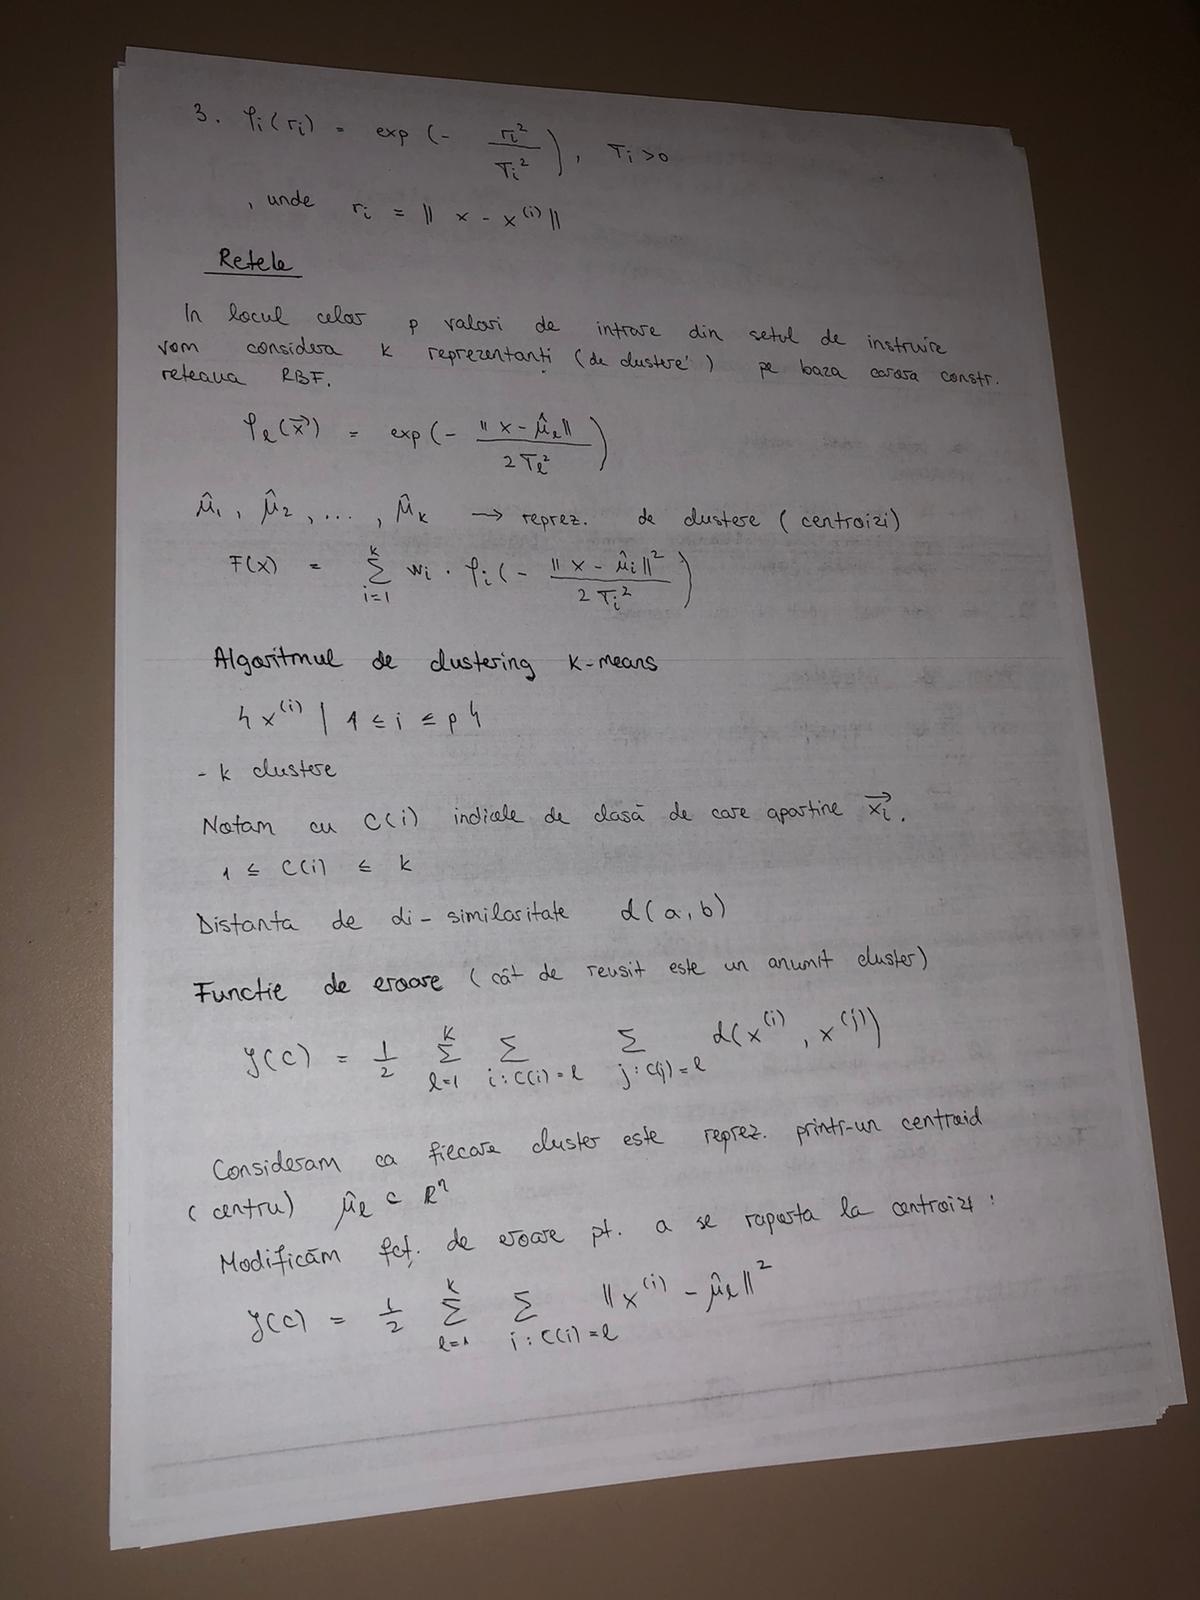 3. φi(ri) = exp(- ri²/Ti²), Ti>0
, unde ri = || x - x^(i) ||
Retele
In locul celor p valori de intrare din setul de instruire
vom considera k reprezentanți (de clustere) pe baza carora constr.
reteaua RBF.
φℓ(x⃗) = exp(- ||x - μ̂ℓ|| / 2Tℓ²)
μ̂1, μ̂2, ..., μ̂k → reprez. de clustere (centroizi)
F(x) = Σ_{i=1}^{k} wi · φi(- ||x - μ̂i||² / 2Ti²)
Algoritmul de clustering k-means
{x^(i) | 1 ≤ i ≤ p}
- k clustere
Notam cu C(i) indicele de clasă de care apartine x⃗i.
1 ≤ C(i) ≤ k
Distanta de di-similaritate d(a,b)
Functie de eroare (cât de reusit este un anumit cluster)
J(C) = 1/2 Σ_{ℓ=1}^{K} Σ_{i:C(i)=ℓ} Σ_{j:C(j)=ℓ} d(x^(i), x^(j))
Consideram ca fiecare cluster este reprez. printr-un centroid
(centru) μ̂ℓ ⊂ Rⁿ
Modificăm fcț. de eroare pt. a se raporta la centroizi:
J(C) = 1/2 Σ_{ℓ=1}^{k} Σ_{i:C(i)=ℓ} ||x^(i) - μ̂ℓ||²